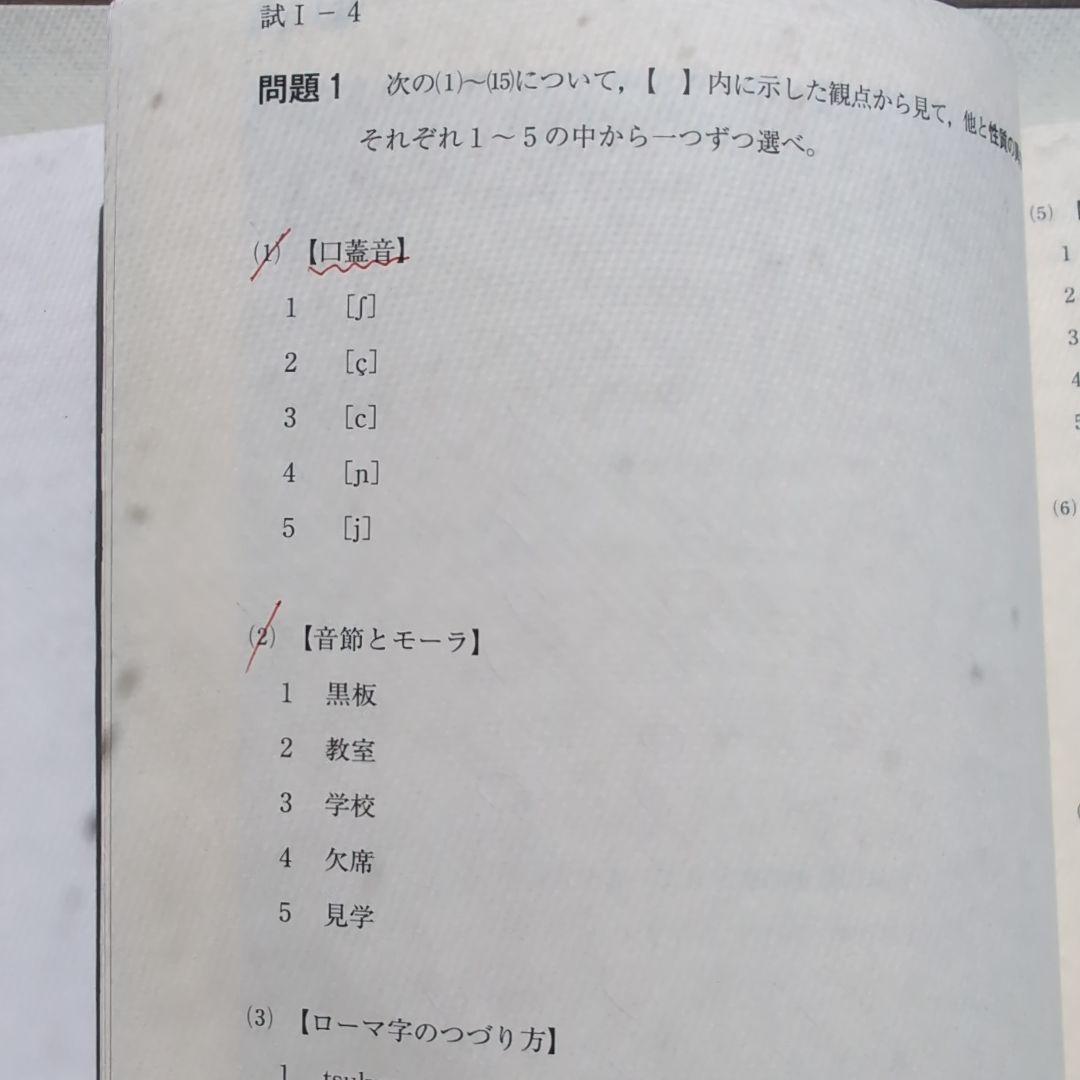 試Ⅰ－4
問題1 次の(1)～(15)について，【 】内に示した観点から見て，他と性質の
それぞれ1～5の中から一つずつ選べ。
(1) 【口蓋音】
1 [ʃ]
2 [ç]
3 [c]
4 [ɲ]
5 [j]
(2) 【音節とモーラ】
1 黒板
2 教室
3 学校
4 欠席
5 見学
(3) 【ローマ字のつづり方】
1
(5)
1
2
3
4
5
(6)